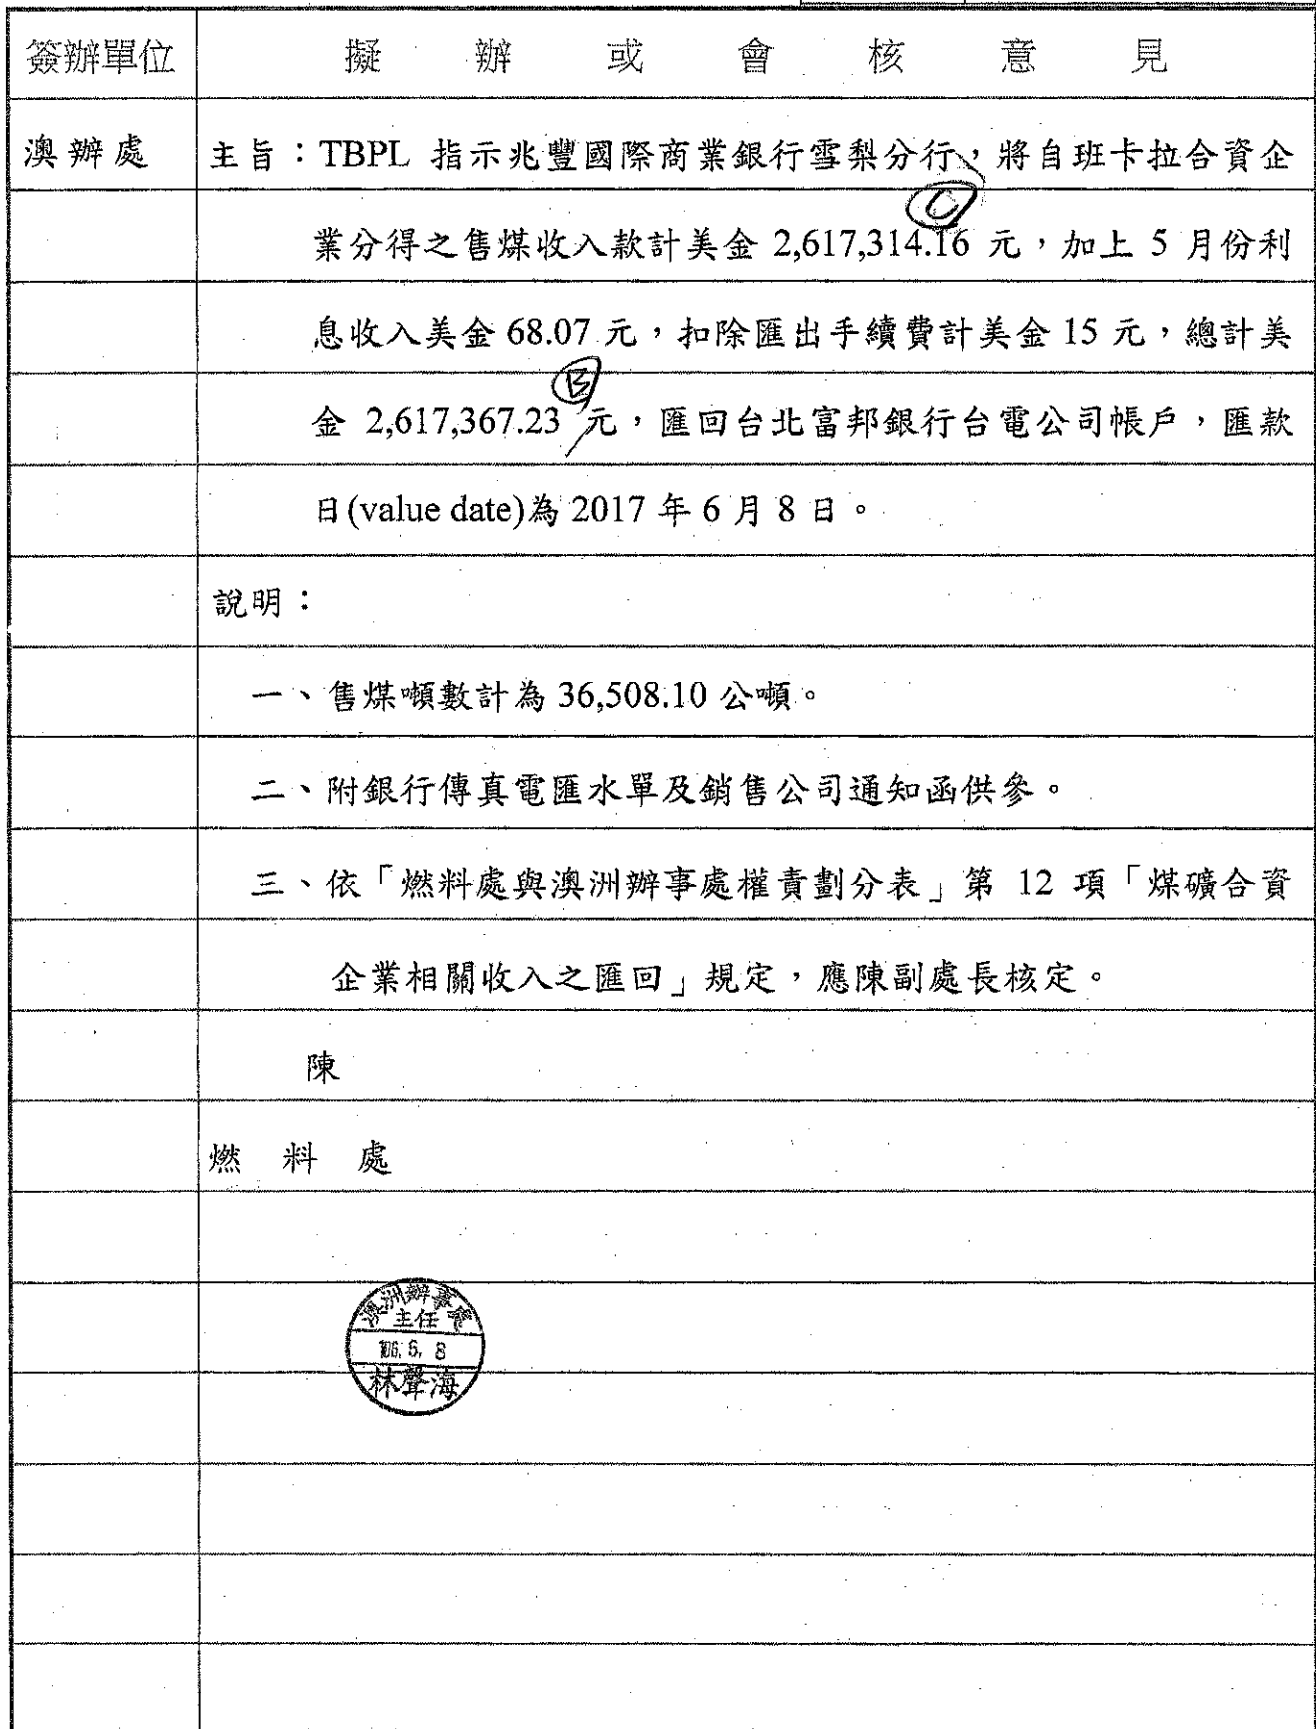 簽辦單位 擬辦或會核意見
澳辦處 主旨：TBPL 指示兆豐國際商業銀行雪梨分行，將自班卡拉合資企
業分得之售煤收入款計美金 2,617,314.16 元，加上 5 月份利
息收入美金 68.07 元，扣除匯出手續費計美金 15 元，總計美
金 2,617,367.23 元，匯回台北富邦銀行台電公司帳戶，匯款
日(value date)為 2017 年 6 月 8 日。
說明：
一、售煤噸數計為 36,508.10 公噸。
二、附銀行傳真電匯水單及銷售公司通知函供參。
三、依「燃料處與澳洲辦事處權責劃分表」第 12 項「煤礦合資
企業相關收入之匯回」規定，應陳副處長核定。
陳
燃料處
澳洲辦事處
主任
106. 6. 8
林聲海